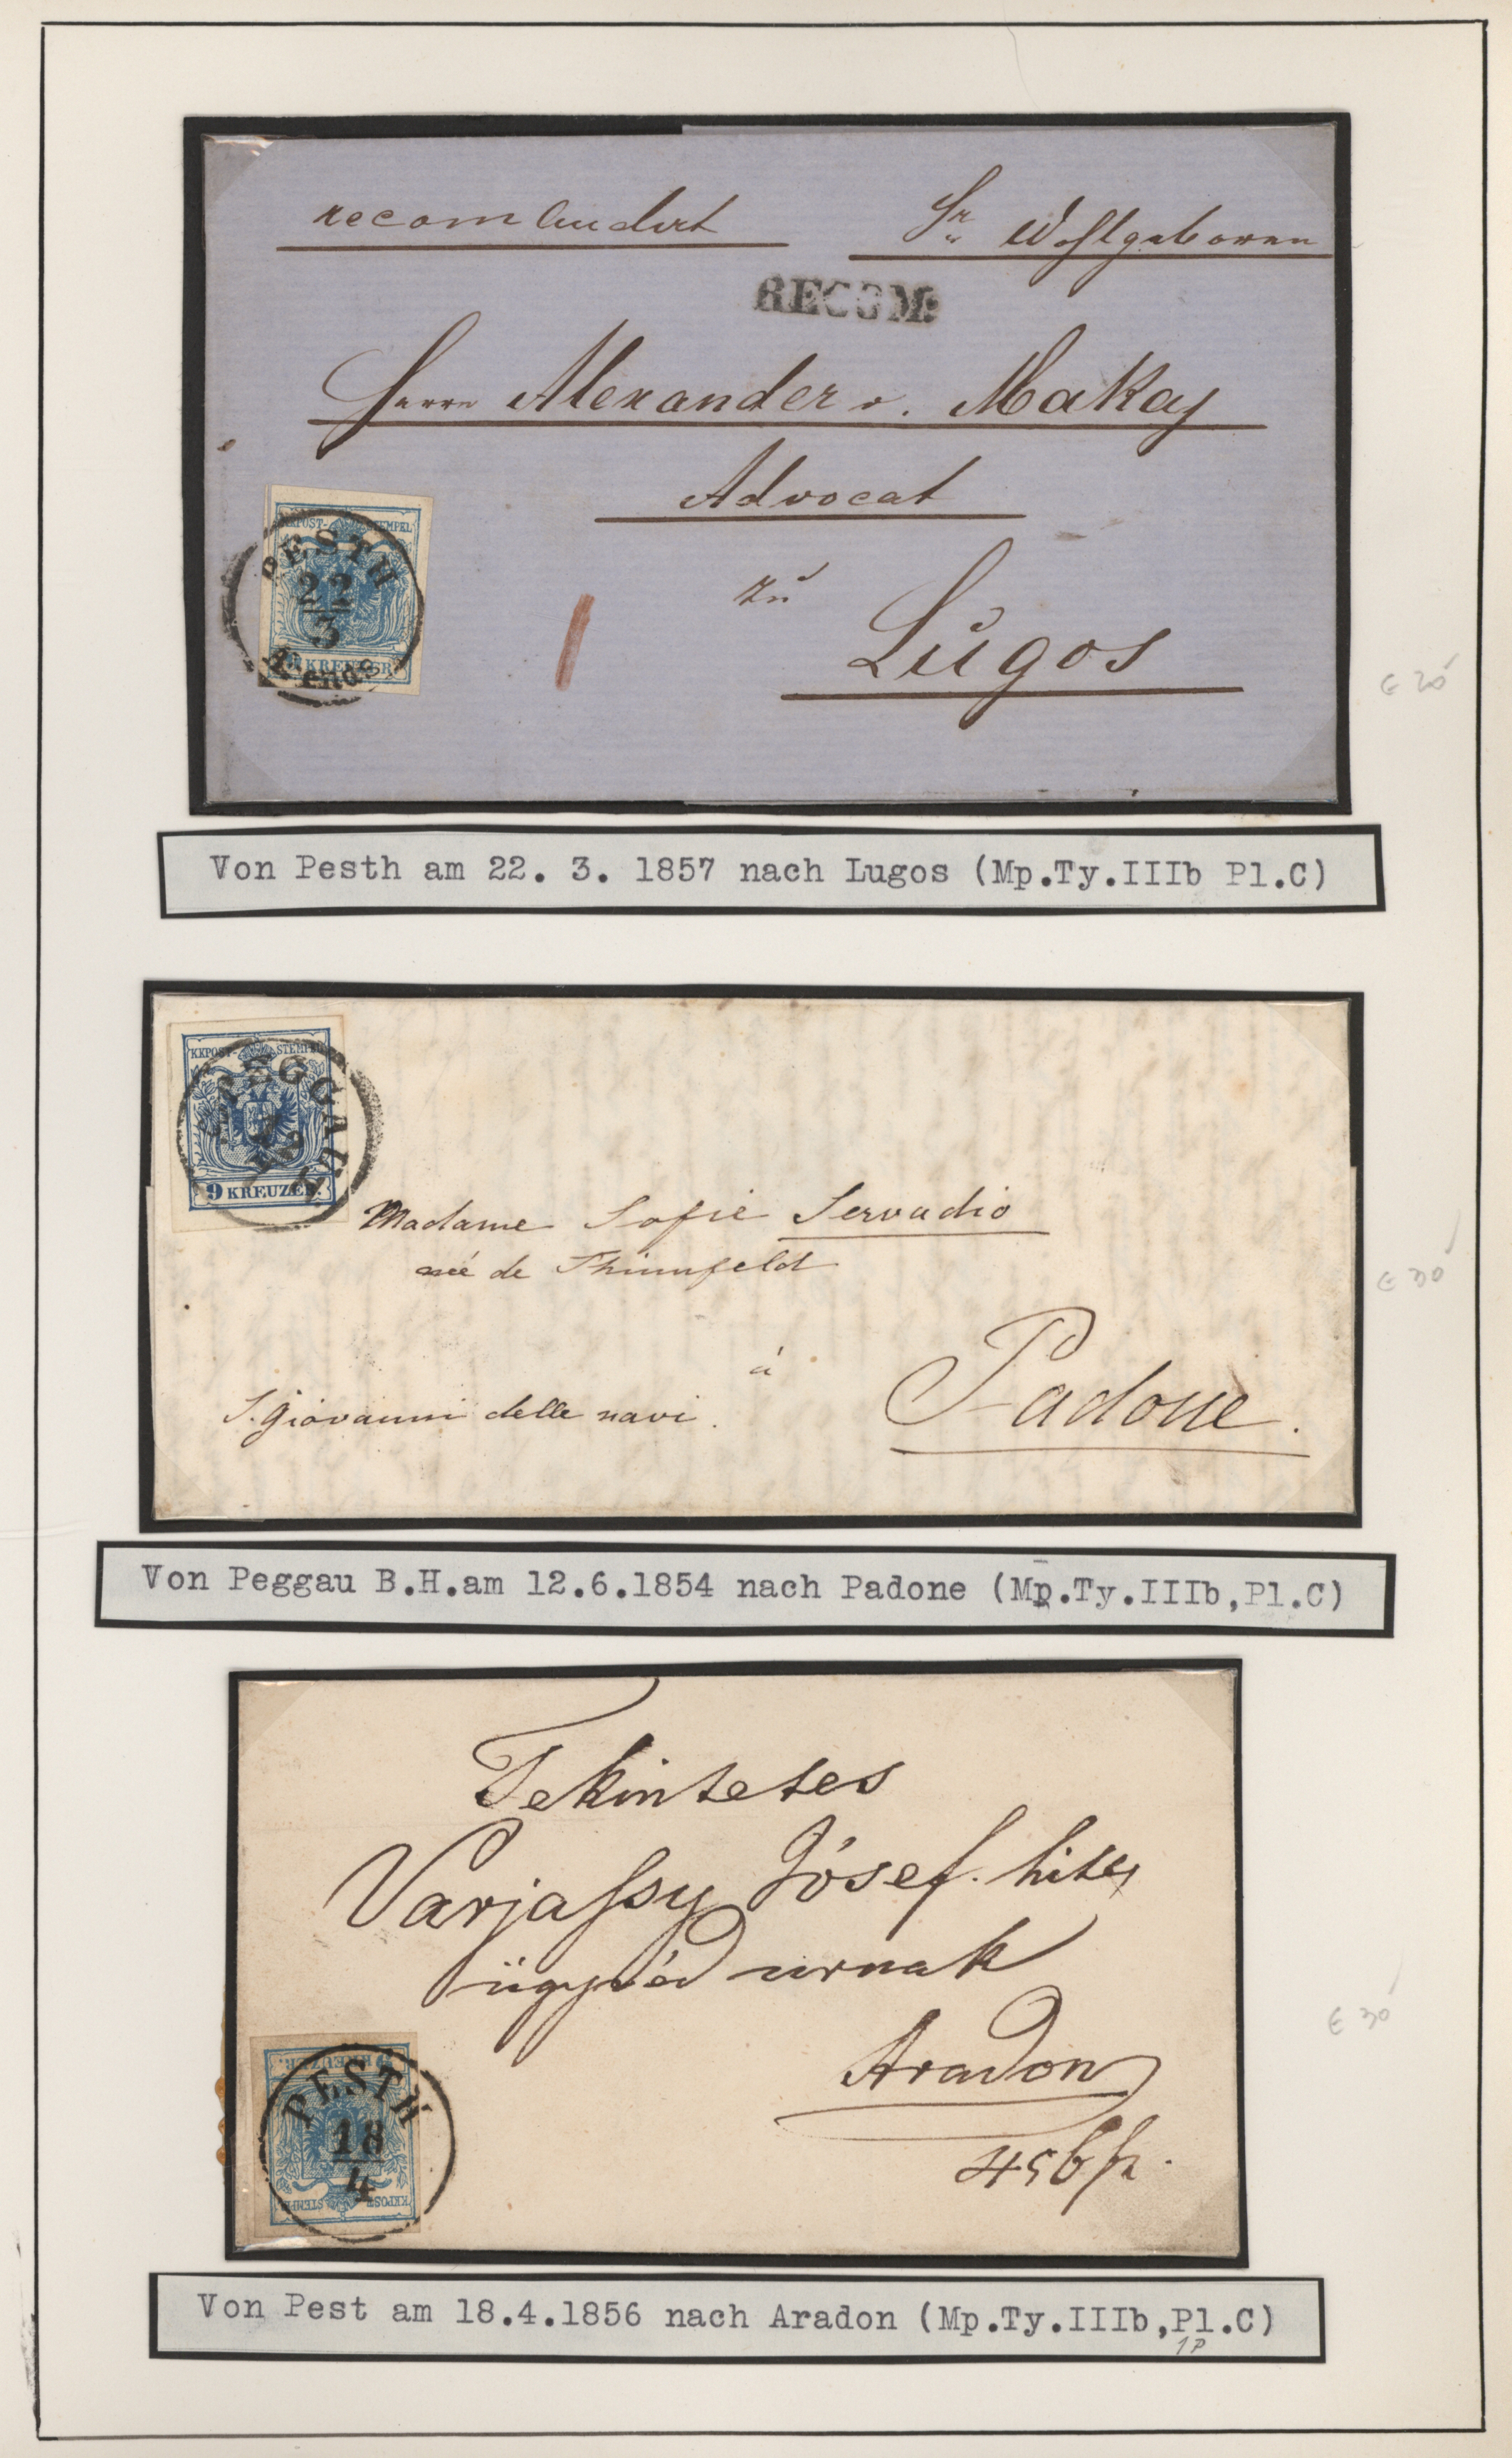 recomandirt
Sr Wohlgeboren
RECOM:
Herrn Alexander v. Makay
Advocat
zu
Lugos
KKPOST-STEMPEL
PESTH
22
3
KREUZER
€ 20
Von Pesth am 22. 3. 1857 nach Lugos (Mp.Ty.IIIb Pl.C)
KKPOST-STEMPEL
PEGGAU
9 KREUZER.
Madame Sofie Servadio
née de Thinnfeld
à
Padoue.
S. Giovanni delle navi.
€ 30
Von Peggau B.H.am 12.6.1854 nach Padone (Mp.Ty.IIIb,Pl.C)
Tekintetes
Varjassy Jósef. hites
ügyvéd urnak
Aradon
€ 30
9 KREUZER.
PESTH
18
4
KKPOST-STEMPEL
Von Pest am 18.4.1856 nach Aradon (Mp.Ty.IIIb,Pl.C)
1P